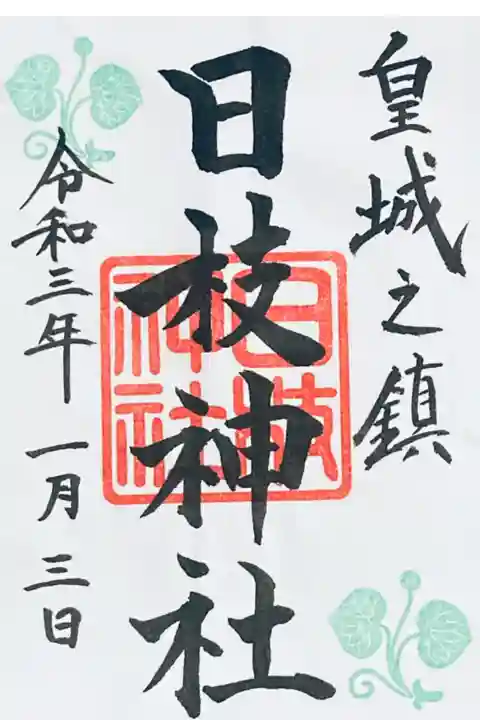 皇城之鎮
日枝神社
日枝神社
令和三年 一月三日